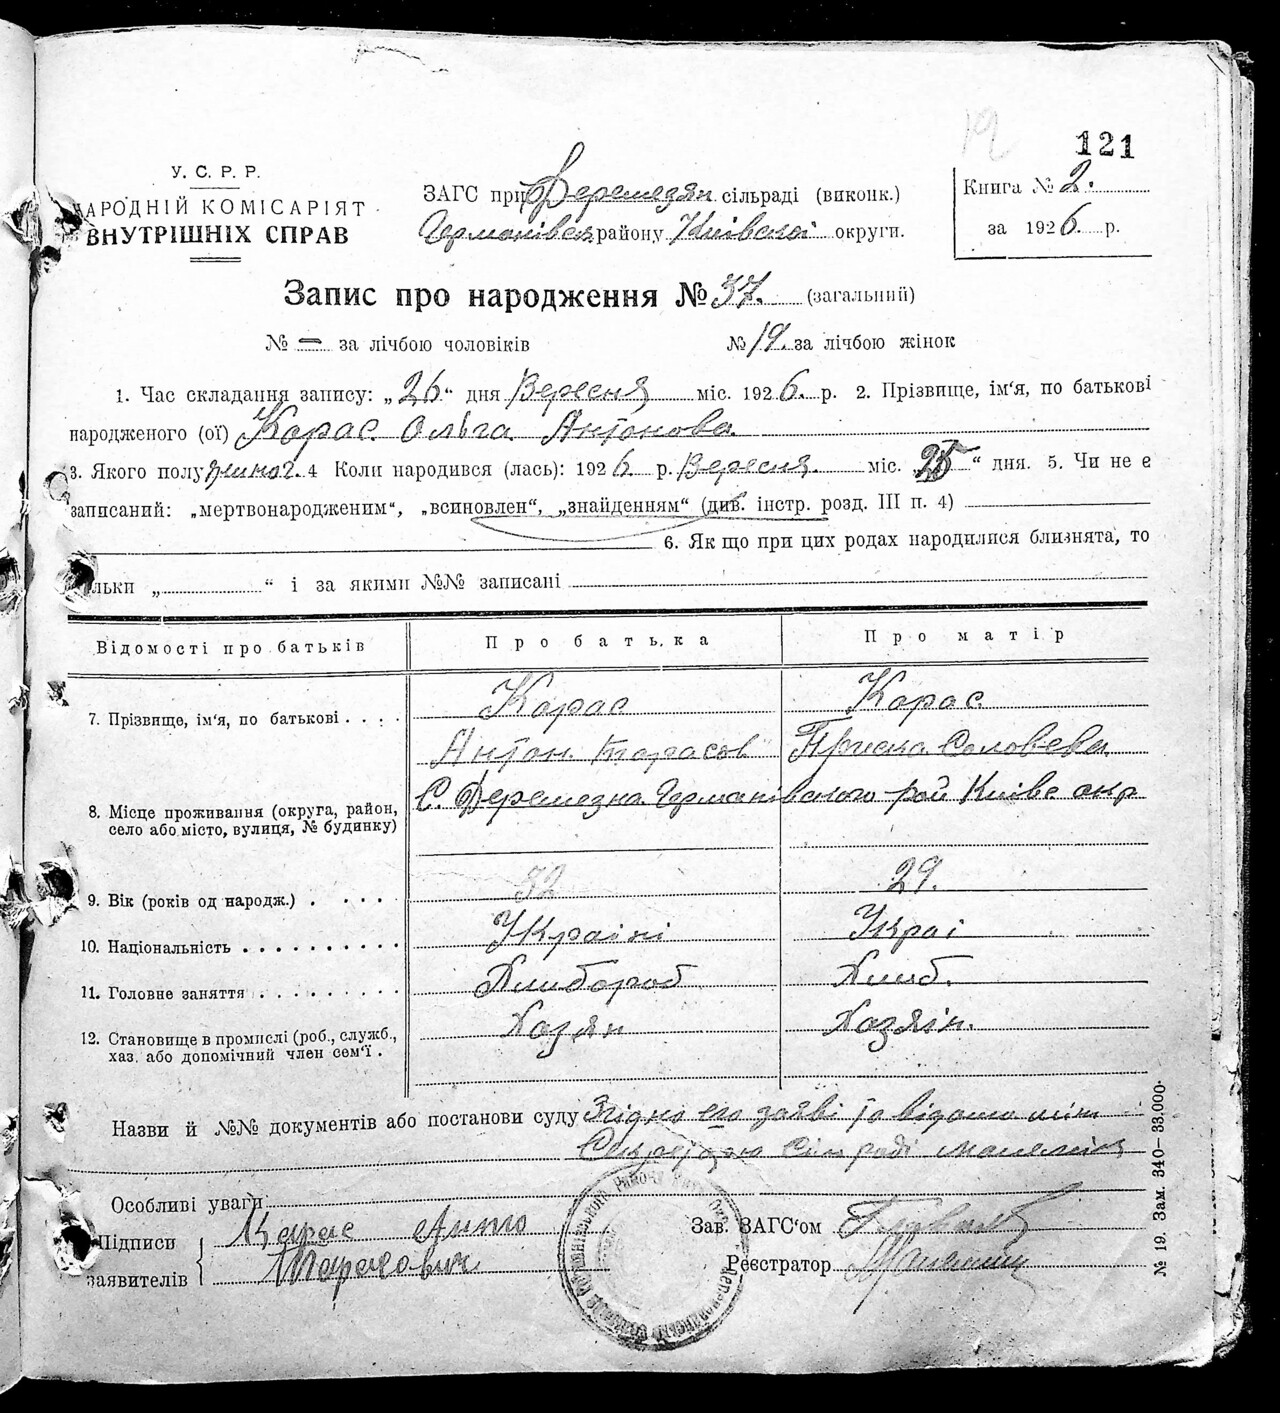 19
121
У. С. Р. Р.
НАРОДНІЙ КОМІСАРІЯТ
ВНУТРІШНІХ СПРАВ
ЗАГС при Деремезян сільраді (виконк.)
Германівск району Київскої округи.
Книга № 2.
за 1926. р.
Запис про народження № 37. (загальний)
№ — за лічбою чоловіків № 19. за лічбою жінок
1. Час складання запису: „26“ дня Вересня міс. 1926. р. 2. Прізвище, ім'я, по батькові
народженого (ої) Карас Ольга Антонова
3. Якого полу жіноч. 4 Коли народився (лась): 1926 р. Вересня. міс. „25“ дня. 5. Чи не є
записаний: „мертвонародженим“, „всиновлен“, „знайденням“ (див. інстр. розд. III п. 4)
6. Як що при цих родах народилися близнята, то
льки „ “ і за якими №№ записані
Відомості про батьків Про батька Про матір
7. Прізвище, ім'я, по батькові . . . . Карас Карас
Антон Тарасов Приська Соловева
8. Місце проживання (округа, район, С. Деремезна Германівского рай Київс окр
село або місто, вулиця, № будинку)
9. Вік (років од народж.) . . . . . 32 29.
10. Національність . . . . . . . . . . Україні Украі
11. Головне заняття . . . . . . . . . Хлибороб Хлиб.
12. Становище в промислі (роб., служб., Хозян Хазяін.
хаз. або допомічний член сем'ї .
Назви й №№ документів або постанови суду Згідно его заяві та відомо
сіл раді
Особливі уваги
Підписи Карас Анто
заявителів Тарасович
Зав. ЗАГС'ом
Реєстратор
№ 19. Зам. 340—33.000.